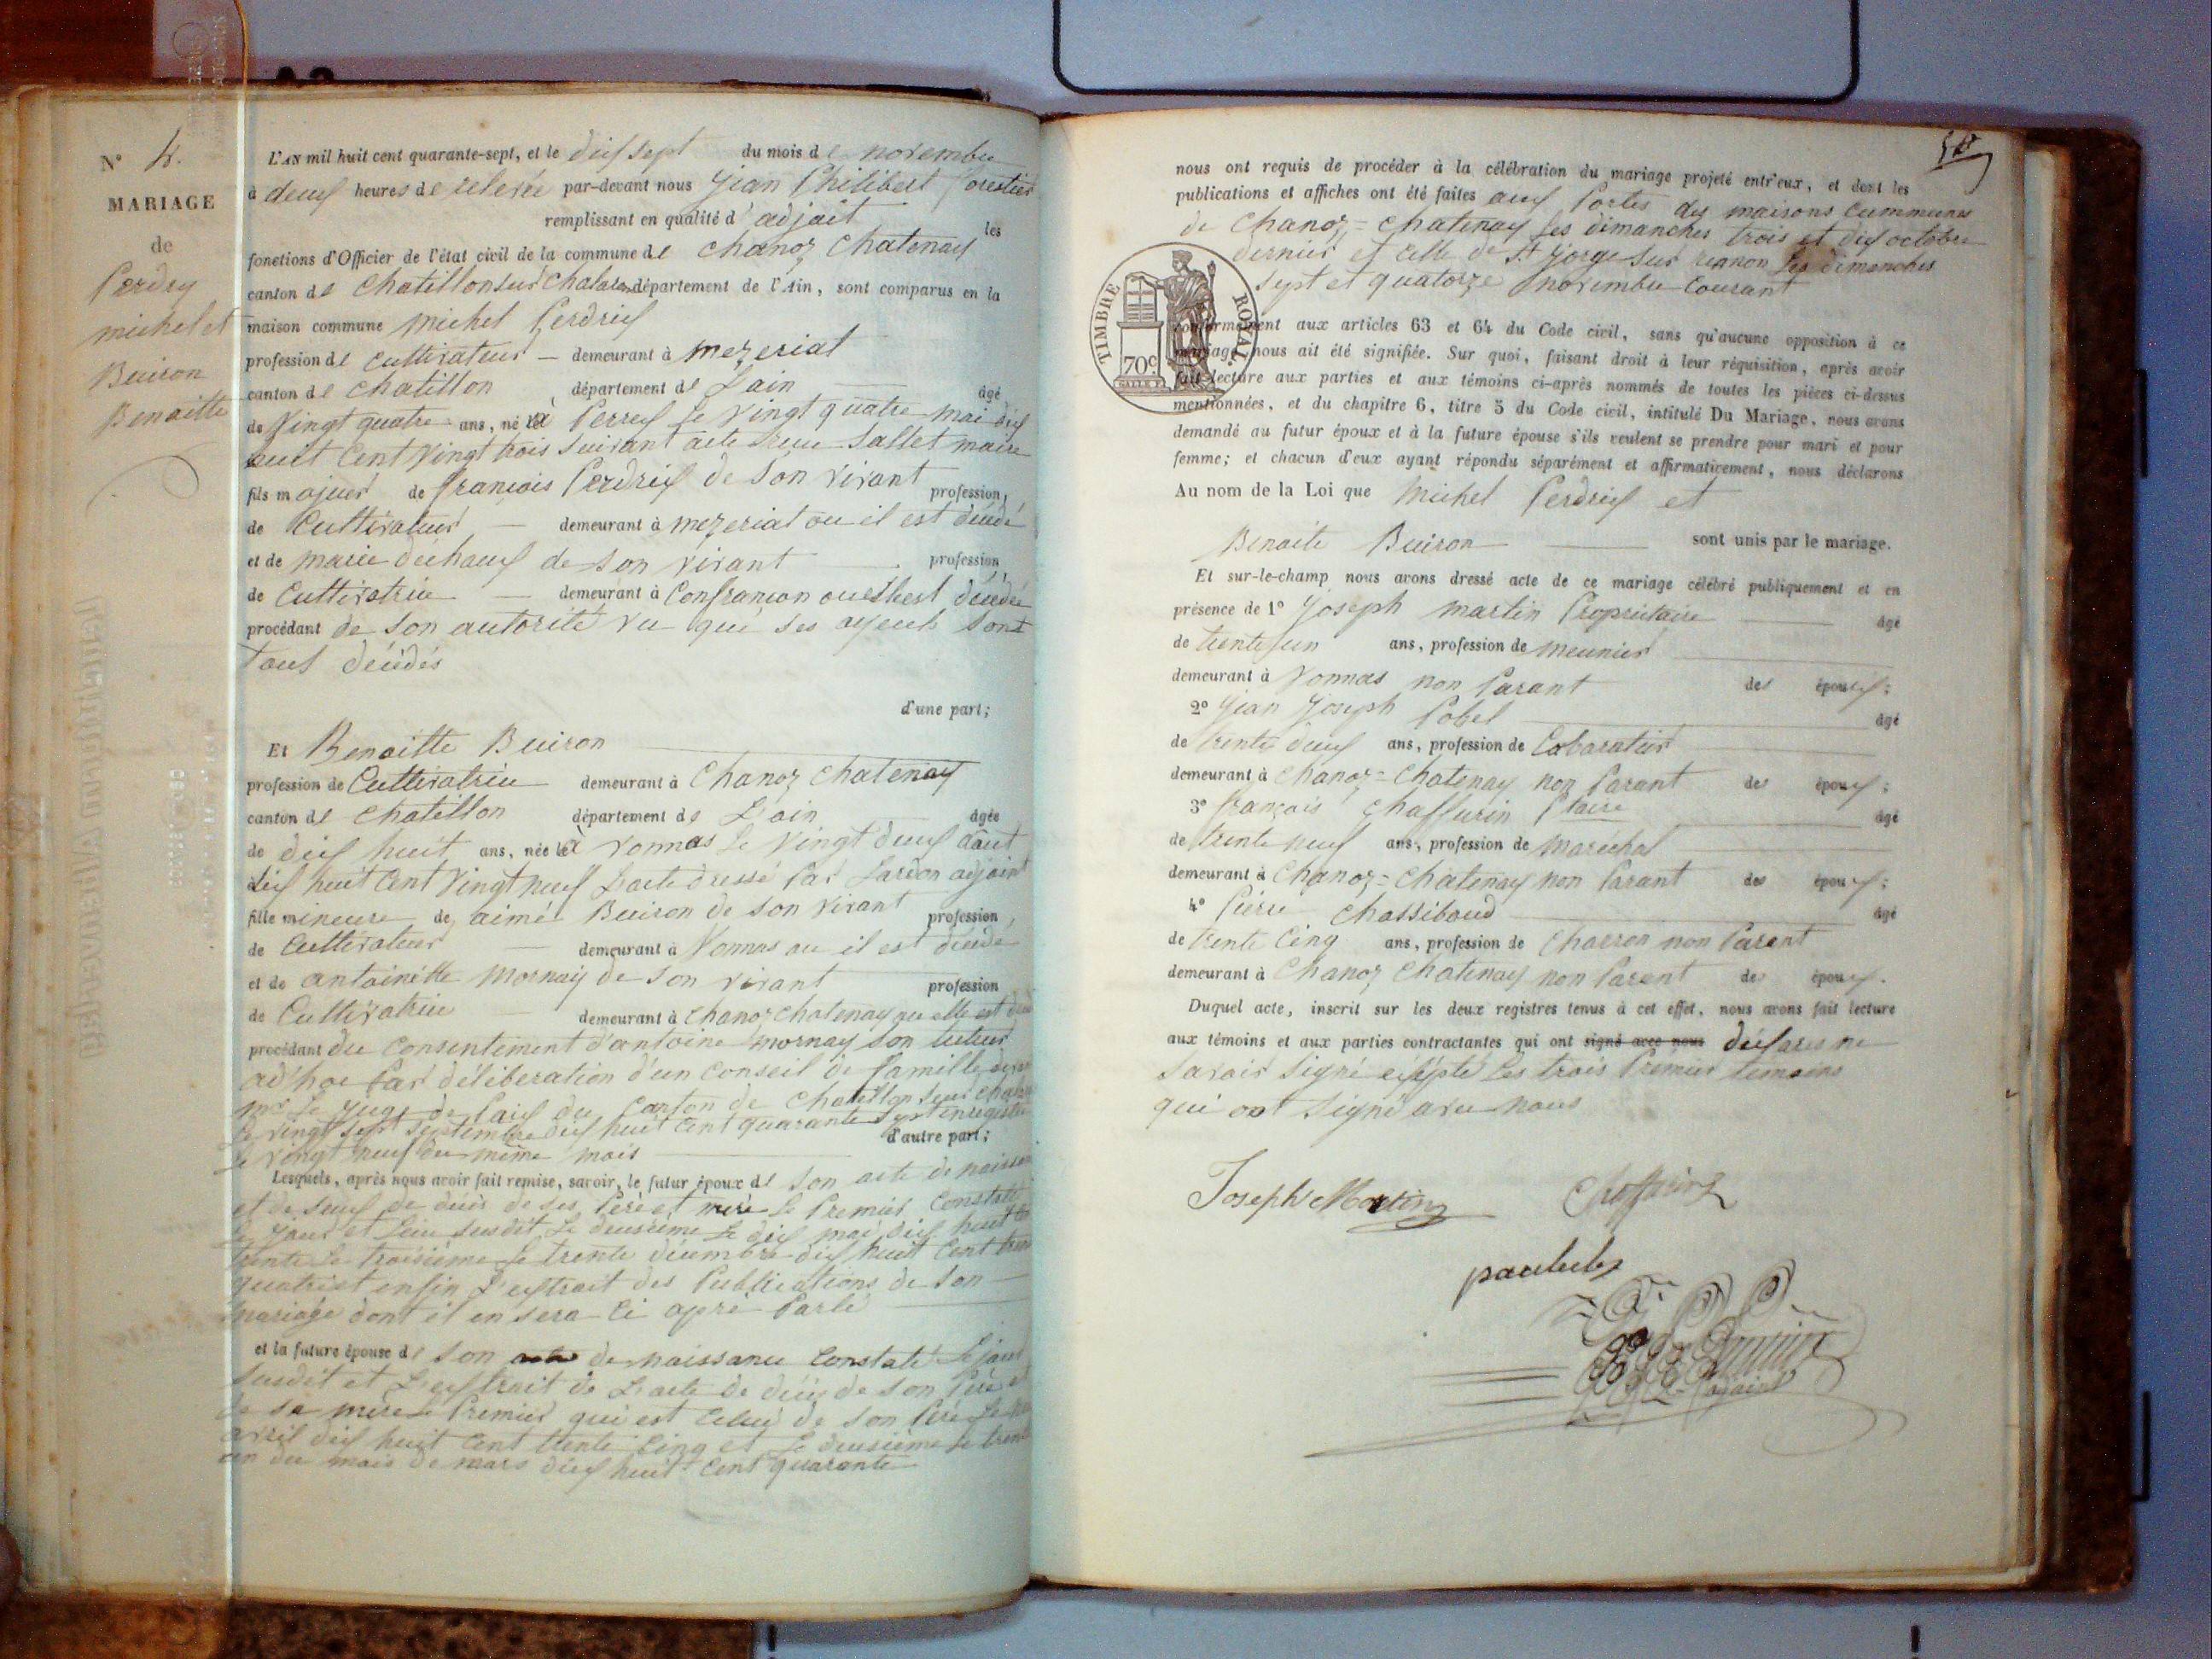 N° 4.
MARIAGE
de
Perdry
michel et
Buiron
Benoitte
L'AN mil huit cent quarante-sept, et le dixsept du mois de novembre
à deux heures de relevée par-devant nous Jean Philibert forestier
remplissant en qualité d'adjoit les
fonctions d'Officier de l'état civil de la commune de chanoz chatenay
canton de chatillon sur chalar département de l'Ain, sont comparus en la
maison commune michel Perdrix
profession de cultivateur demeurant à mezeriat
canton de chatillon département de L'ain âgé
de vingt quatre ans, né à Perrex le vingt quatre mai dix
huit cent vingt trois suivant acte sallet maire
fils majeur de françois Perdrix de son vivant profession,
de cultivateur demeurant à mezeriat ou il est décédé
et de marie dechaux de son vivant profession,
de cultivatrice demeurant à confrancon ou elle est décédée
procédant de son autorité vu que ses ayeuls sont
tous décédés
d'une part;
Et Benoitte Buiron
profession de Cultivatrice demeurant à chanoz chatenay
canton de chatillon département de L'ain âgée
de dix huit ans, née à vonnas le vingt deux août
dix huit cent vingt neuf L'acte dressé Par Lardon adjoint
fille mineure de aimé Buiron de son vivant profession,
de cultivateur demeurant à Vonnas ou il est décédé
et de antoinette mornay de son vivant profession
de Cultivatrice demeurant à chanoz chatenay ou elle est
procédant du consentement d'antoine mornay son tuteur
ad'hoc Par déliberation d'un conseil de famille
mr le juge de Paix du canton de chatillon sur
le vingt sept septembre dix huit cent quarante sept enregistré
d'autre part;
le vingt neuf du même mois
Lesquels, après nous avoir fait remise, savoir, le futur époux de son acte de
et de de décès de ses Père et mère le Premier constaté
jour et lieu susdit le deuxième le dix mai dix huit
trente le troisième le trente décembre dix huit cent
quatre et enfin L'extrait des Publications de son
mariage dont il en sera ci apré Parlé
et la future épouse de son acte de naissance constaté le jour
susdit et L'extrait de L'acte de décés de son Père et
de sa mère le Premier qui est celuy de son Père
avril dix huit cent trente cinq et le deuxième le
un du mois de mars dix huit cent quarante
nous ont requis de procéder à la célébration du mariage projeté entr'eux, et dont les
publications et affiches ont été faites aux Portes des maisons communes
de chanoz=chatenay les dimanches trois et dix octobre
dernier et celle de St jorge sur renon les dimanches
sept et quatorze novembre courant
TIMBRE ROYAL
70c
conformément aux articles 63 et 64 du Code civil, sans qu'aucune opposition à ce
mariage nous ait été signifiée. Sur quoi, faisant droit à leur réquisition, après avoir
fait lecture aux parties et aux témoins ci-après nommés de toutes les pièces ci-dessus
mentionnées, et du chapitre 6, titre 5 du Code civil, intitulé Du Mariage, nous avons
demandé au futur époux et à la future épouse s'ils veulent se prendre pour mari et pour
femme; et chacun d'eux ayant répondu séparément et affirmativement, nous déclarons
Au nom de la Loi que Michel Perdrix et
Benoite Buiron sont unis par le mariage.
Et sur-le-champ nous avons dressé acte de ce mariage célébré publiquement et en
présence de 1° Joseph martin Propriétaire âgé
de trente un ans, profession de meunier
demeurant à Vonnas non Parant des époux;
2° Jean Joseph Pobel âgé
de trente deux ans, profession de Cabaratier
demeurant à chanoz=chatenay non Parant des époux;
3° françois chaffurin âgé
de trente neuf ans, profession de maréchal
demeurant à Chanoz=Chatenay non Parant des époux;
4° Pierre chassiboud âgé
de trente cinq ans, profession de charron non Parent
demeurant à Chanoz Chatenay non Parent des époux.
Duquel acte, inscrit sur les deux registres tenus à cet effet, nous avons fait lecture
aux témoins et aux parties contractantes qui ont signé avec nous
savoir signé les trois Premier temoins
qui ont signé avec nous
Joseph Martin
adjoint